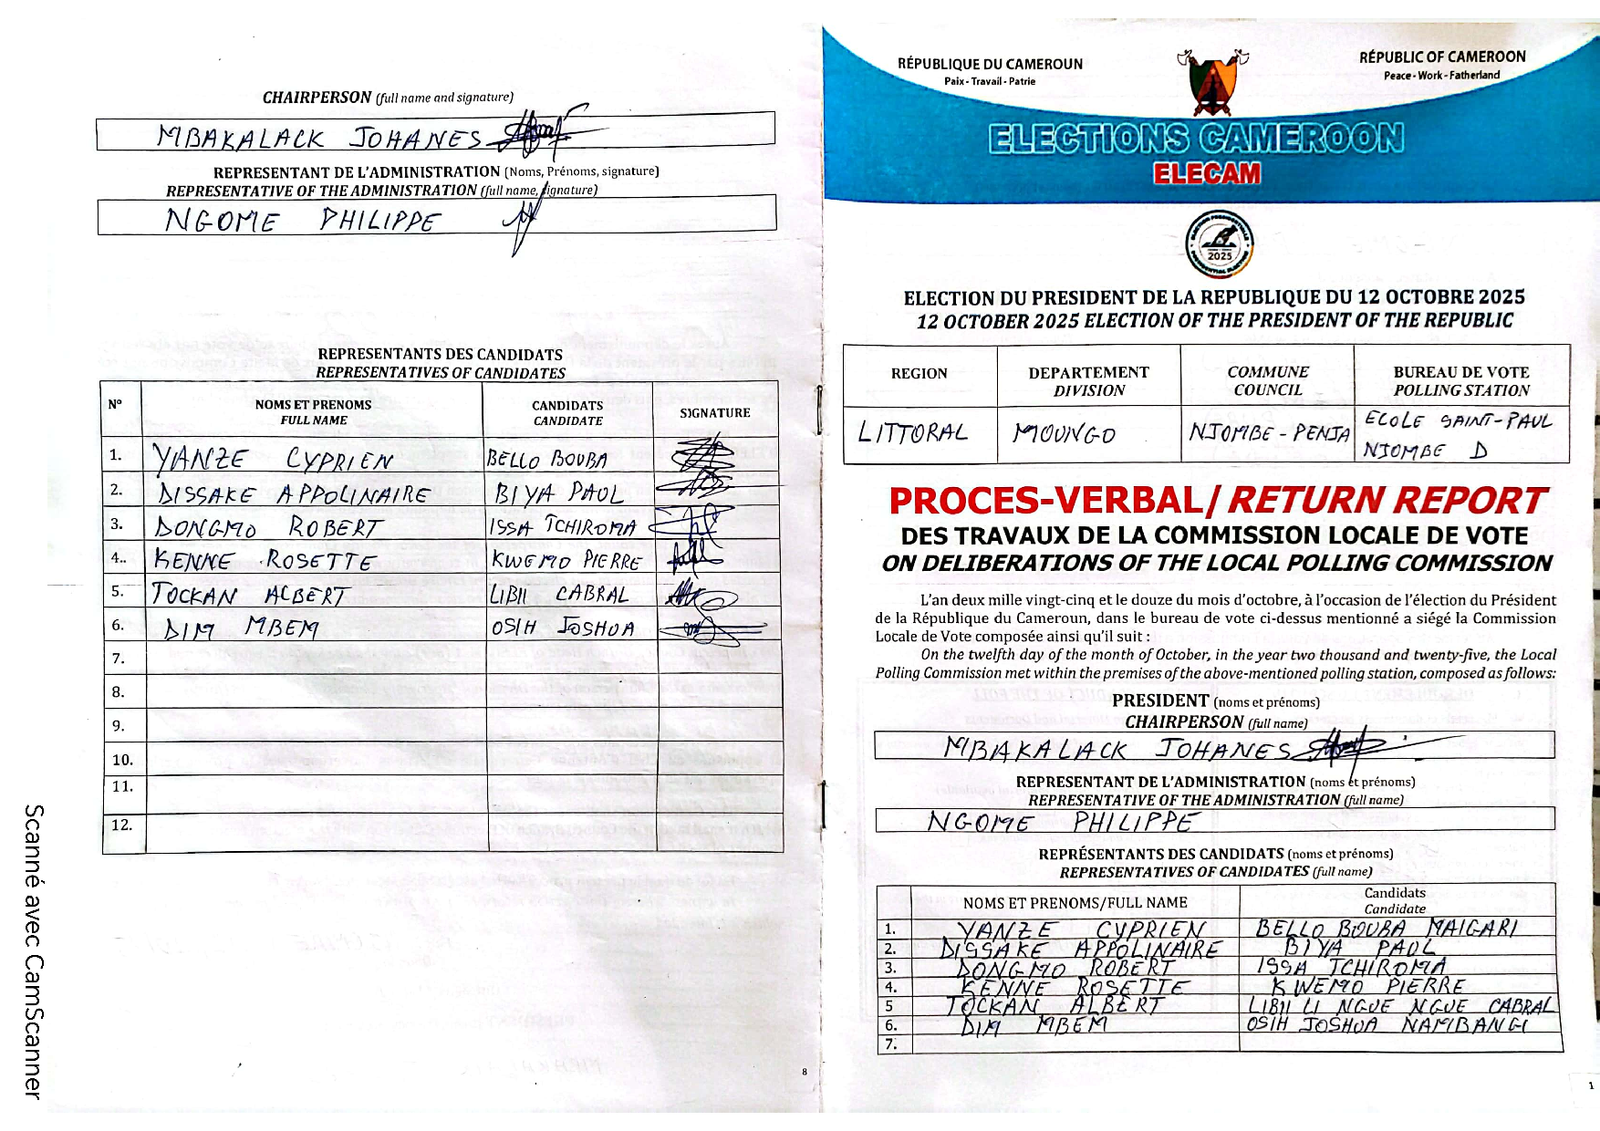 CHAIRPERSON (full name and signature)
MBAKALACK JOHANES
REPRESENTANT DE L'ADMINISTRATION (Noms, Prénoms, signature)
REPRESENTATIVE OF THE ADMINISTRATION (full name, signature)
NGOME PHILIPPE
REPRESENTANTS DES CANDIDATS
REPRESENTATIVES OF CANDIDATES
N° NOMS ET PRENOMS FULL NAME CANDIDATS CANDIDATE SIGNATURE
1. YANZE CYPRIEN BELLO BOUBA
2. DISSAKE APPOLINAIRE BIYA PAUL
3. DONGMO ROBERT ISSA TCHIROMA
4.. KENNE ROSETTE KWEMO PIERRE
5. TOCKAN ALBERT LIBII CABRAL
6. DIM MBEM OSIH JOSHUA
7.
8.
9.
10.
11.
12.
8
Scanné avec CamScanner
RÉPUBLIQUE DU CAMEROUN
Paix - Travail - Patrie
RÉPUBLIC OF CAMEROON
Peace - Work - Fatherland
ELECTIONS CAMEROON
ELECAM
2025
ELECTION DU PRESIDENT DE LA REPUBLIQUE DU 12 OCTOBRE 2025
12 OCTOBER 2025 ELECTION OF THE PRESIDENT OF THE REPUBLIC
REGION DEPARTEMENT DIVISION COMMUNE COUNCIL BUREAU DE VOTE POLLING STATION
LITTORAL MOUNGO NJOMBE-PENJA ECOLE SAINT-PAUL
NJOMBE D
PROCES-VERBAL/ RETURN REPORT
DES TRAVAUX DE LA COMMISSION LOCALE DE VOTE
ON DELIBERATIONS OF THE LOCAL POLLING COMMISSION
L'an deux mille vingt-cinq et le douze du mois d'octobre, à l'occasion de l'élection du Président
de la République du Cameroun, dans le bureau de vote ci-dessus mentionné a siégé la Commission
Locale de Vote composée ainsi qu'il suit :
On the twelfth day of the month of October, in the year two thousand and twenty-five, the Local
Polling Commission met within the premises of the above-mentioned polling station, composed as follows:
PRESIDENT (noms et prénoms)
CHAIRPERSON (full name)
MBAKALACK JOHANES
REPRESENTANT DE L'ADMINISTRATION (noms et prénoms)
REPRESENTATIVE OF THE ADMINISTRATION (full name)
NGOME PHILIPPE
REPRÉSENTANTS DES CANDIDATS (noms et prénoms)
REPRESENTATIVES OF CANDIDATES (full name)
NOMS ET PRENOMS/FULL NAME Candidats Candidate
1. YANZE CYPRIEN BELLO BOUBA MAIGARI
2. DISSAKE APPOLINAIRE BIYA PAUL
3. DONGMO ROBERT ISSA TCHIROMA
4. KENNE ROSETTE KWEMO PIERRE
5 TOCKAN ALBERT LIBII LI NGUE NGUE CABRAL
6. DIM MBEM OSIH JOSHUA NAMBANGI
7.
1